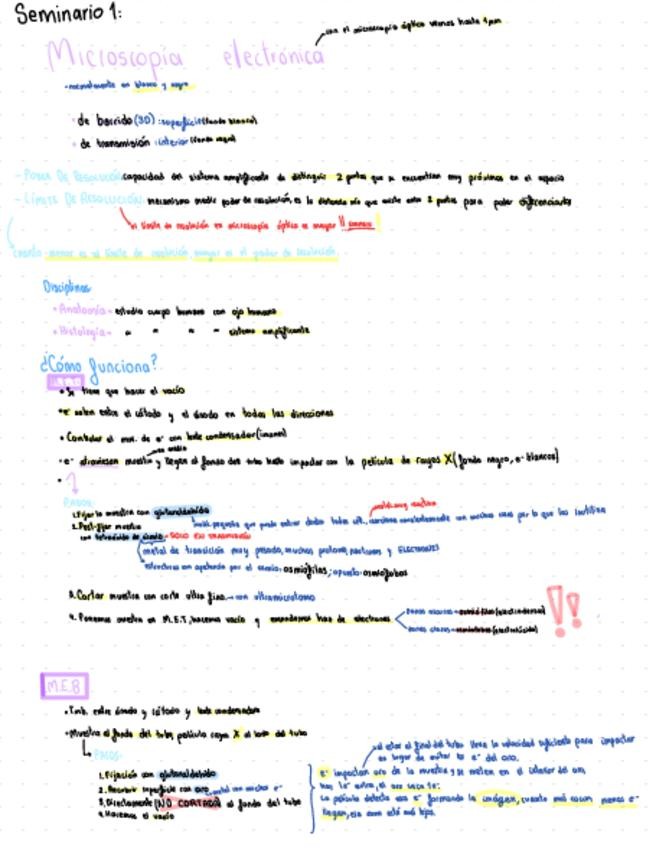 Seminario 1:
con el microscopio óptico vemos hasta 1µm
Microscopía electrónica
-normalmente en blanco y negro
· de barrido (3D): superficie (fondo blanco)
· de transmisión: interior (fondo negro)
- PODER DE RESOLUCIÓN: capacidad del sistema amplificante de distinguir 2 puntos que se encuentran muy próximos en el espacio
- LÍMITE DE RESOLUCIÓN: mecanismo medir poder de resolución, es la distancia mín que existe entre 2 puntos para poder diferenciarlos
el límite de resolución en microscopía óptica es mayor
Cuanto menor es el límite de resolución, mayor es el poder de resolución
Disciplinas
· Anatomía - estudia cuerpo humano con ojo humano
· Histología - " " " " sistema amplificante
¿Cómo funciona?
· Se tiene que hacer el vacío
· e⁻ salen entre el cátodo y el ánodo en todas las direcciones
· Controlar el mov. de e⁻ con lente condensador (imanes)
· e⁻ atraviesan muestra y llegan al fondo del tubo hasta impactar con la película de rayos X (fondo negro, e⁻ blancos)
PASOS:
1. Fijar la muestra con glutaraldehído
2. Post-fijar muestra
con tetraóxido de osmio - SOLO EN TRANSMISIÓN
metal de transición muy pesado, muchos protones, neutrones y ELECTRONES
estructuras con apetencia por el osmio: osmiófilas; opuesto: osmiófobas
3. Cortar muestra con corte ultra fino - con ultramicrotomo
4. Ponemos muestra en M.E.T, hacemos vacío y encendemos haz de electrones
zonas oscuras - osmiófilas (electrodensas)
zonas claras - osmiófobas (electrolúcidas)
!!
M.E.B
· Tmb. entre ánodo y cátodo y lente condensadora
· Muestra al fondo del tubo, película rayos X al lado del tubo
PASOS:
1. Fijación con glutaraldehído
2. Recubrir superficie con oro metal con muchos e⁻
3. Directamente (NO CORTADA) al fondo del tubo
4. Hacemos el vacío
al estar al final del tubo lleva la velocidad suficiente para impactar
en lugar de quitar los e⁻ del oro.
e⁻ impactan oro de la muestra y se meten en el interior del oro,
hay 1e⁻ extra, el oro saca 1e⁻.
La película detecta esos e⁻ formando la imagen, cuanto más oscuro menos e⁻
llegan, esa zona está más lejos.